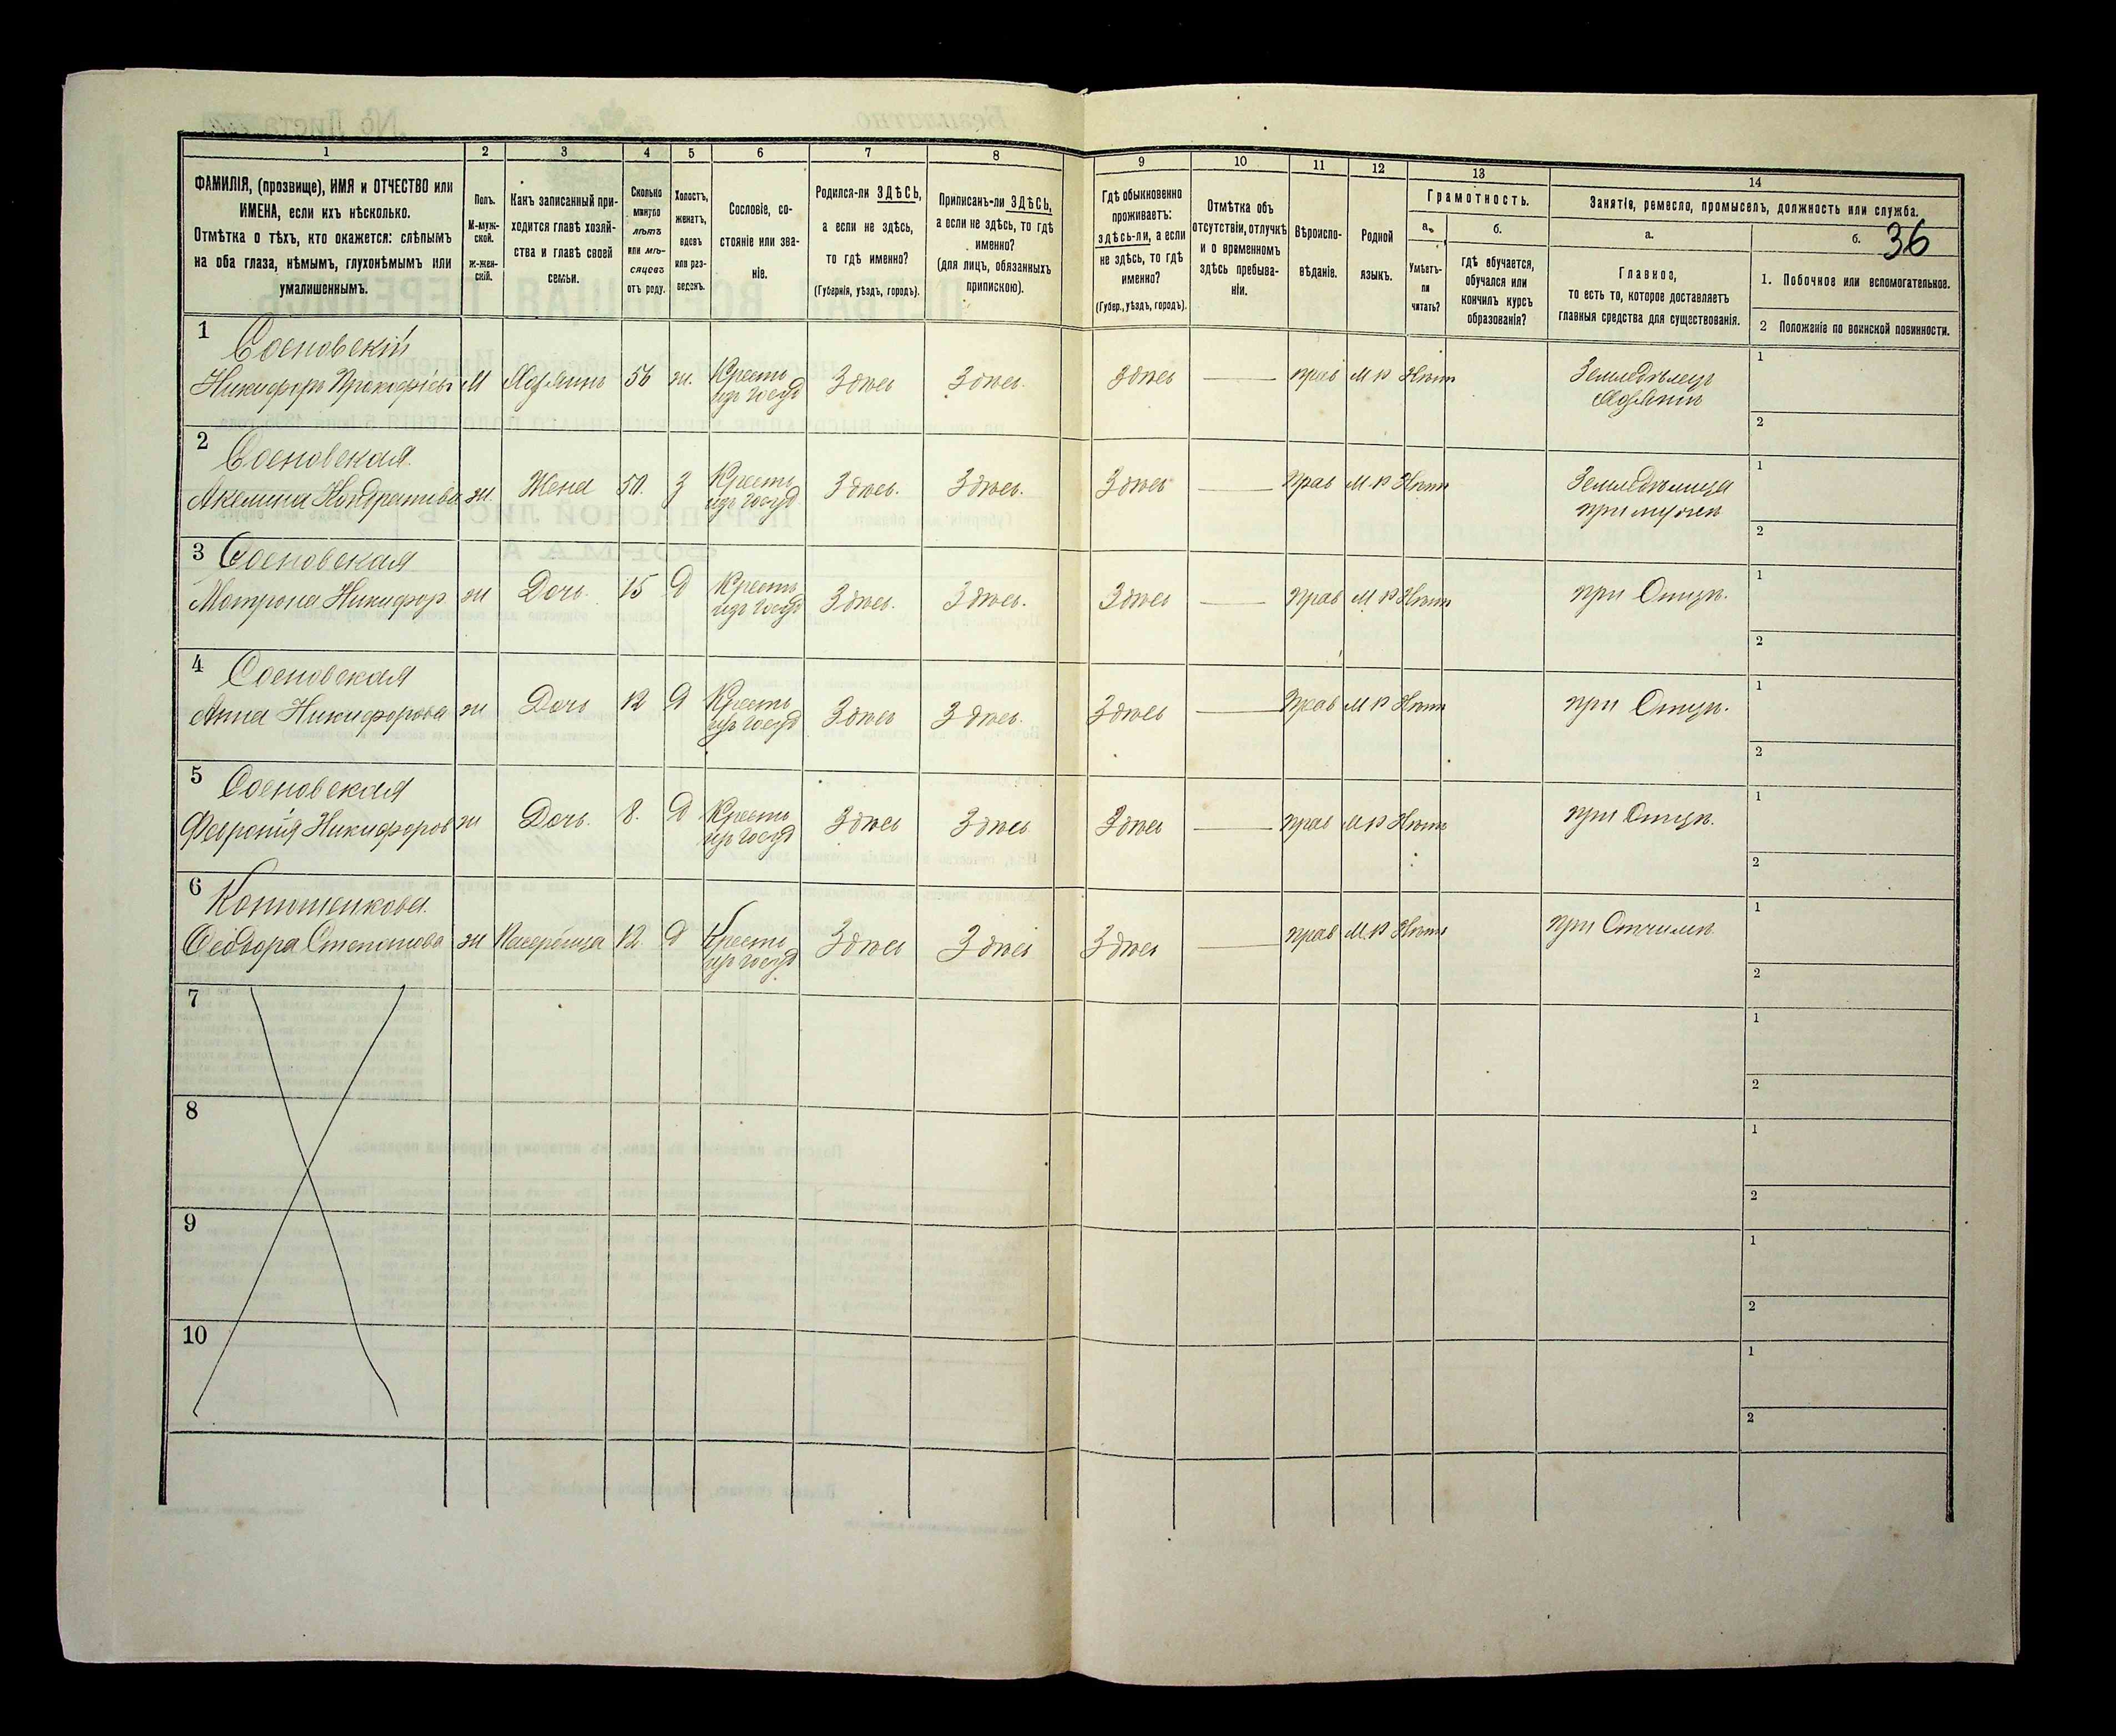 1 2 3 4 5 6 7 8 9 10 11 12 13 14
ФАМИЛІЯ, (прозвище), ИМЯ и ОТЧЕСТВО или
ИМЕНА, если ихъ нѣсколько.
Отмѣтка о тѣхъ, кто окажется: слѣпымъ
на оба глаза, нѣмымъ, глухонѣмымъ или
умалишеннымъ.
Полъ.
М-муж-
ской.
ж-жен-
скій.
Какъ записанный при-
ходится главѣ хозяй-
ства и главѣ своей
семьи.
Сколько
минуло
лѣтъ
или мѣ-
сяцевъ
отъ роду.
Холостъ,
женатъ,
вдовъ
или раз-
веденъ.
Сословіе, со-
стояніе или зва-
ніе.
Родился-ли ЗДѢСЬ,
а если не здѣсь,
то гдѣ именно?
(Губернія, уѣздъ, городъ).
Приписанъ-ли ЗДѢСЬ,
а если не здѣсь, то гдѣ
именно?
(для лицъ, обязанныхъ
припискою).
Гдѣ обыкновенно
проживаетъ:
здѣсь-ли, а если
не здѣсь, то гдѣ
именно?
(Губер., уѣздъ, городъ).
Отмѣтка объ
отсутствіи, отлучкѣ
и о временномъ
здѣсь пребыва-
ніи.
Вѣроиспо-
вѣданіе.
Родной
языкъ.
Грамотность.
а.
Умѣетъ-
ли
читать?
б.
гдѣ обучается,
обучался или
кончилъ курсъ
образованія?
Занятіе, ремесло, промыселъ, должность или служба.
а.
Главное,
то есть то, которое доставляетъ
главныя средства для существованія.
б.
36
1. Побочное или вспомогательное.
2 Положеніе по воинской повинности.
1 Сосновскій
Никифоръ Прокофіевъ М Хозяинъ 56 ж. Кресть изъ госуд Здѣсь Здѣсь. Здѣсь — прав М Р Нѣтъ Земледѣлецъ 1
Хозяинъ 2
2 Сосновская
Акелина Кондратьева ж. Жена 50. З Кресть изъ госуд Здѣсь. Здѣсь. Здѣсь — Прав М Р Нѣтъ Земледѣлица 1
при мужѣ 2
3 Сосновская
Матрона Никифор ж Дочь. 15 Д Кресть изъ госуд Здѣсь. Здѣсь. Здѣсь — Прав М Р Нѣтъ при Отцѣ. 1
2
4 Сосновская
Анна Никифорова ж Дочь 12 Д Кресть изъ госуд Здѣсь Здѣсь. Здѣсь — Прав М Р Нѣтъ при Отцѣ. 1
2
5 Сосновская
Февронія Никифоров ж Дочь. 8. Д Кресть изъ госуд Здѣсь Здѣсь Здѣсь — прав М Р Нѣтъ при Отцѣ. 1
2
6 Конюшенкова.
Феодора Степанова ж 12 Д Кресть изъ госуд Здѣсь Здѣсь Здѣсь — прав М Р Нѣтъ при Отчимѣ 1
2
7 1
2
8 1
2
9 1
2
10 1
2